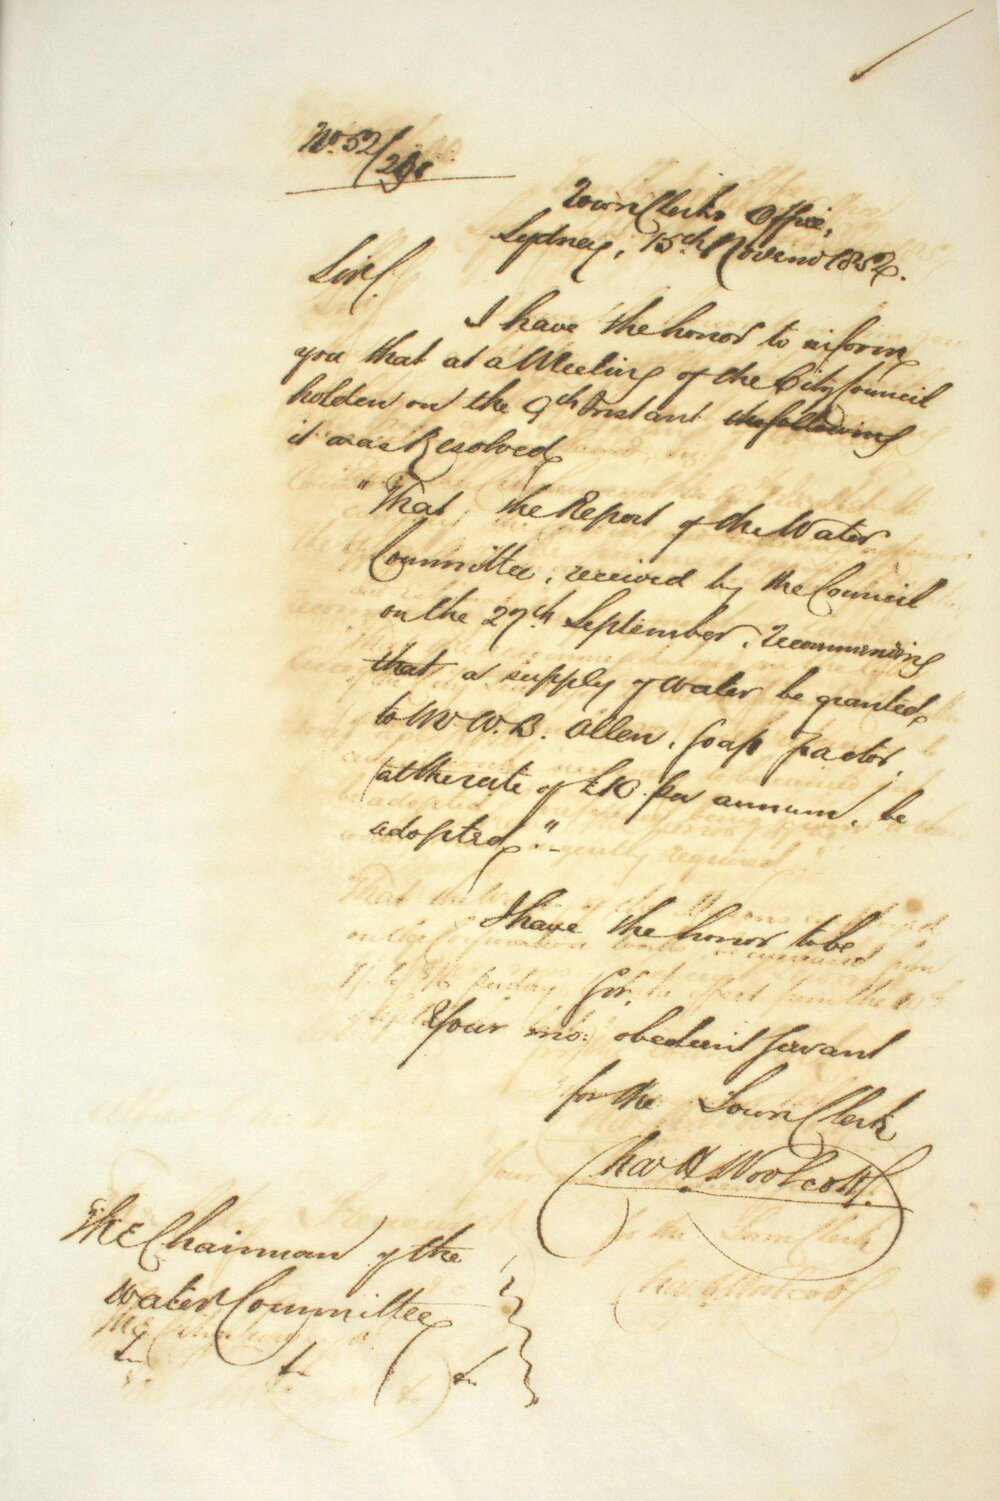 No. 52/
Town Clerk's Office,
Sydney, 15th Novemr 1852.
Sir,
I have the honor to inform
you that at a Meeting of the City Council
holden on the 9th Instant the following
it was Resolved,
"That the Report of the Water
Committee, received by the Council
on the 27th September, recommending
that a supply of Water be granted,
to Mr W. B. Allen, Soap Factor,
at the rate of £10 per annum, be
adopted."-
I have the honor to be
Sir,
Your mo: obedient Servant
for the Town Clerk
Chas H Woolcott.
The Chairman of the
Water Committee
&c &c &c